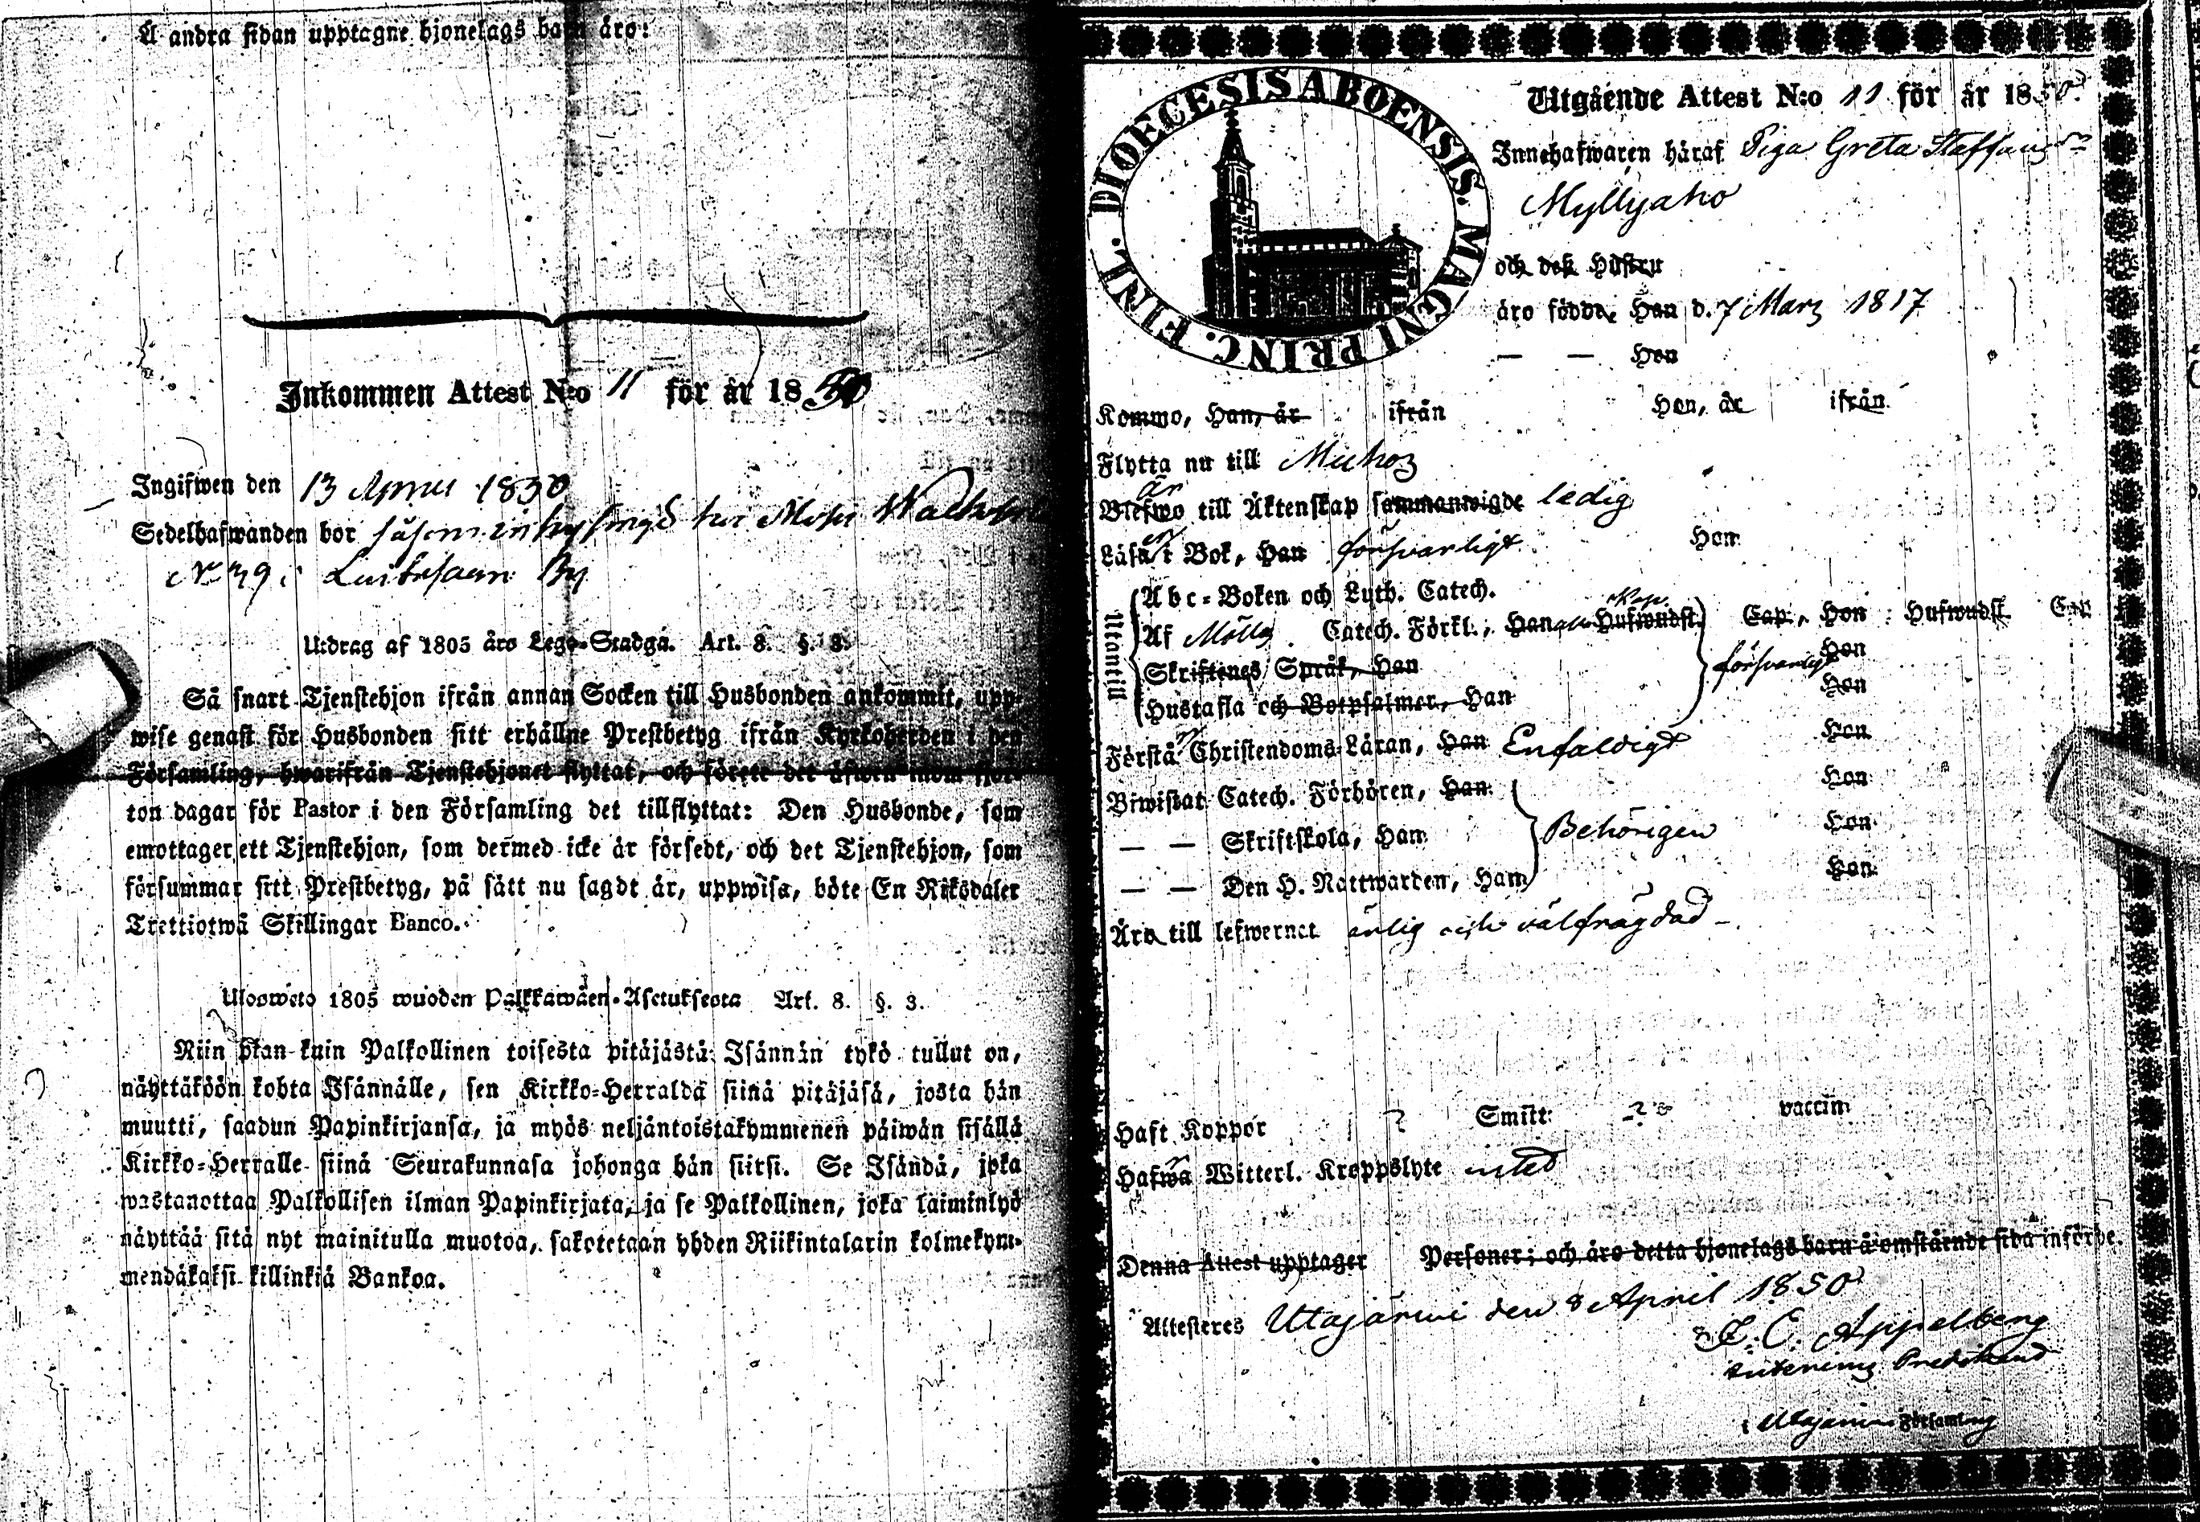 Å andra sidan upptagne hjonelags barn äro:
Inkommen Attest N:o 11 för år 1850
Ingifwen den 13 April 1850
Sedelhafwanden bor såsom inhyssing hos
N:o 39 i By
Utdrag af 1805 års Lego-Stadga. Art. 8. §. 3.
Så snart Tjenstehjon ifrån annan Socken till Husbonden ankommit, upp-
wise genast för Husbonden sitt erhållne Prestbetyg ifrån Kyrkoherden i den
Församling, hwarifrån Tjenstehjonet flyttat, och förete det äfwen inom fjor-
ton dagar för Pastor i den Församling det tillflyttat: Den Husbonde, som
emottager ett Tjenstehjon, som dermed icke är försedt, och det Tjenstehjon, som
försummar sitt Prestbetyg, på sätt nu sagdt är, uppwisa, böte En Riksdaler
Trettiotwå Skillingar Banco.
Ulosweto 1805 wuoden Palkkawäen-Asetuksesta Art. 8. §. 3.
Niin pian kuin Palkollinen toisesta pitäjästä Isännän tykö tullut on,
näyttäköön kohta Isännälle, sen Kirkko-Herralda siinä pitäjäsä, josta hän
muutti, saadun Papinkirjansa, ja myös neljäntoistakymmenen päiwän sisällä
Kirkko-Herralle siinä Seurakunnasa johonga hän siirsi. Se Isändä, joka
wastanottaa Palkollisen ilman Papinkirjata, ja se Palkollinen, joka laiminlyö
näyttää sitä nyt mainitulla muotoa, sakotetaan yhden Riikintalarin kolmekym-
mendäkaksi killinkiä Bankoa.
DIOECESIS ABOENSIS. MAGNI PRINC. FINL.
Utgående Attest N:o 11 för år 1850.
Innehafwaren häraf Piga Greta Staffansdr
Myllyaho
och dess Hustru
äro födde, Han d. 7 Mars 1817
— — Hon
Kommo, Han, år ifrån Hon, år ifrån
Flytta nu till Muhos
är
Blefwo till Äktenskap sammanwigde ledig
Läsa i Bok, Han försvarligt Hon
Utantill
Abc-Boken och Luth. Catech.
Af Möllg. Catech. Förkl., Han Hufwudst. Cap., Hon Hufwudst. Cap
Skriftenes Språk, Han försvarligt Hon
Hustafla och Botpsalmer, Han Hon
Förstå Christendoms-Läran, Han Enfaldigt Hon
Biwistat Catech. Förhören, Han Hon
— — Skriftskola, Han Behörigen Hon
— — Den H. Nattwarden, Han Hon
Äro till lefwernet ärlig och välfrägdad –
Haft Koppor ? Smitt: ? vaccin:
Hafwa Witterl. Kroppslyte intet
Denna Attest upptager Personer; och äro detta hjonelags barn å omstående sida införde.
Attesteres Utajärwi den 8 April 1850
E. C. Appelberg
i Utajärwi Församling